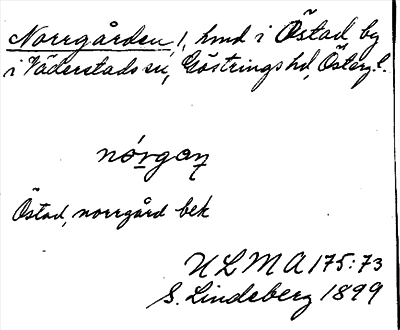 Norrgården, 1, hmd i Östad by
i Väderstads sn, Göstrings hd, Österg l.
nórgaṇ
Östad, norrgård bek
ULMA 175:73
S. Lindeberg 1899